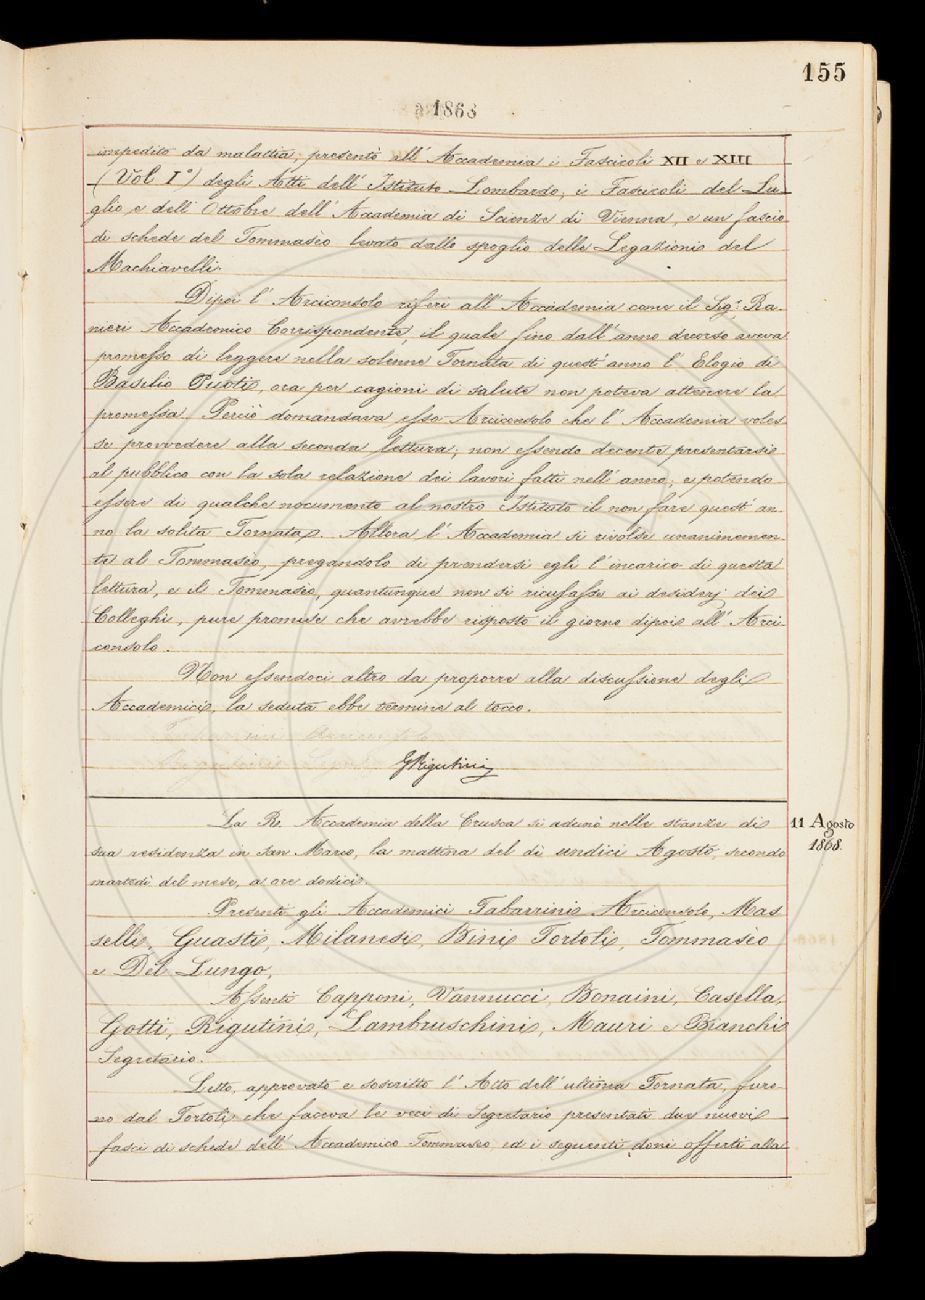 155
1868
impedito da malattia, presentò all' Accademia i Fascicoli XII e XIII
(Vol. I°) degli Atti dell' Istituto Lombardo, i Fascicoli del Lu-
glio e dell' Ottobre dell' Accademia di Scienze di Vienna, e un fascio
di schede del Tommasèo levato dallo spoglio delle Legazioni del
Machiavelli.
Dipoi l' Arciconsolo riferì all' Accademia come il Sigr. Ra-
nieri Accademico Corrispondente, il quale fino dall' anno decorso aveva
promesso di leggere nella solenne Tornata di quest' anno l' Elogio di
Basilio Puoti, ora per cagioni di salute non poteva attenere la
promessa. Perciò domandava esso Arciconsolo che l' Accademia voles
se provvedere alla seconda lettura; non essendo decente presentarsi
al pubblico con la sola relazione dei lavori fatti nell' anno, e potendo
essere di qualche nocumento al nostro Istituto il non fare quest' an-
no la solita Tornata. Allora l' Accademia si rivolse unanimemen-
te al Tommasèo, pregandolo di prendersi egli l' incarico di questa
lettura, e il Tommasèo, quantunque non si ricusasse ai desiderj dei
Colleghi, pure promise che avrebbe risposto il giorno dipoi all' Arci-
consolo.
Non essendoci altro da proporre alla discussione degli
Accademici, la seduta ebbe termine al tocco.
GRigutini
La R. Accademia della Crusca si adunò nelle stanze di
sua residenza in San Marco, la mattina del dì undici Agosto, secondo
martedì del mese, a ore dodici.
11 Agosto
1868.
Presenti gli Accademici Tabarrini Arciconsolo, Mas
selli, Guasti, Milanesi, Bini Tortoli, Tommasèo
e Del Lungo,
Assenti Capponi, Vannucci, Bonaini, Casella,
Gotti, Rigutini, Lambruschini, Mauri e Bianchi
Segretario.
Letto, approvato e soscritto l' Atto dell' ultima Tornata, furo
no dal Tortoli che faceva le veci di Segretario presentati due nuovi
fasci di schede dell' Accademico Tommasèo, ed i seguenti doni offerti alla